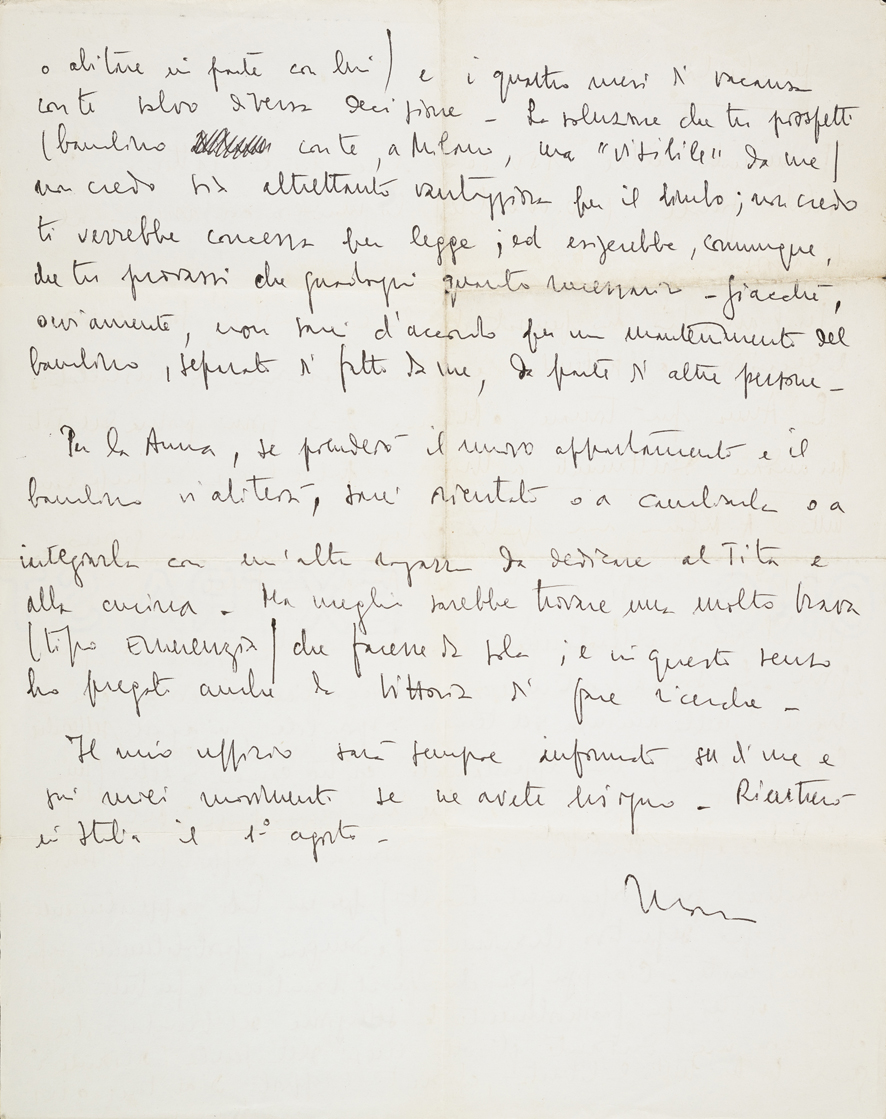 o abitare in parte con lui) e i quattro mesi di vacanza
con te salvo diversa decisione - La soluzione che tu prospetti
(bambino con te, a Milano, ma "visibile" da me)
non credo sia altrettanto vantaggiosa per il bimbo; non credo
ti verrebbe concessa per legge; ed esigerebbe, comunque,
che tu provassi che guadagni quanto necessario - Giacché,
ovviamente, non sarei d'accordo per un mantenimento del
bambino, separato di fatto da me, da parte di altre persone -
Per la Anna, se prenderò il nuovo appartamento e il
bambino vi abiterà, sarei orientato o a cambiarla o a
integrarla con un'altra ragazza da dedicare al Tita e
alla cucina - Ma meglio sarebbe trovare una molto brava
(tipo Emerenzia) che facesse da sola; e in questo senso
ho pregato anche la Vittoria di fare ricerche -
Il mio ufficio sarà sempre informato su di me e
sui miei movimenti se ne avete bisogno - Rientrerò
in Italia il 1º agosto -